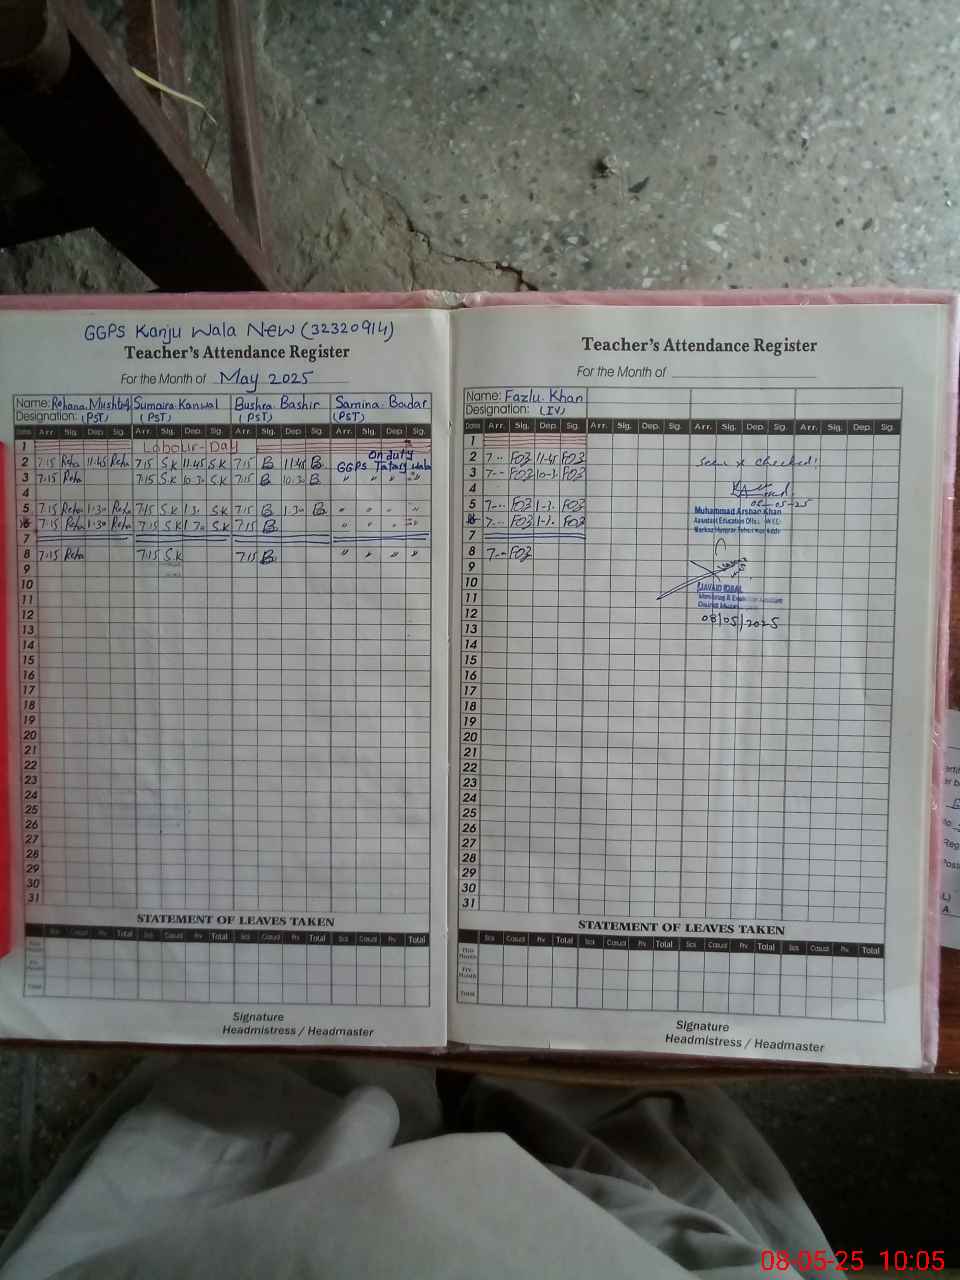 GGPS Kanju Wala New (32320914)
Teacher's Attendance Register
For the Month of May 2025
Name: Rehana Mushtaq Sumaira Kanwal Bushra Bashir Samina Badar
Designation: (PST) (PST) (PST) (PST)
Dates Arr. Sig. Dep. Sig. Arr. Sig. Dep. Sig. Arr. Sig. Dep. Sig. Arr. Sig. Dep. Sig.
1 Labour-Day
2 7:15 Reha 11:45 Reha 7:15 S.K 11:45 S.K 7:15 B 11:45 B On duty
3 7:15 Reha 7:15 S.K 10.30 S.K 7:15 B 10.30 B GGPS Tatary wala
4
5 7:15 Reha 1:30 Reha 7:15 S.K 1.30 S.K 7:15 B 1.30 B " " " "
6 7:15 Reha 1:30 Reha 7:15 S.K S.K 7:15 B " " " "
7
8 7:15 Reha 7:15 S.K 7:15 B " " " "
9
10
11
12
13
14
15
16
17
18
19
20
21
22
23
24
25
26
27
28
29
30
31
STATEMENT OF LEAVES TAKEN
Sick Casual Prv. Total Sick Casual Prv. Total Sick Casual Prv. Total Sick Casual Prv. Total
This Month
Prv. Month
Total
Signature
Headmistress / Headmaster
Teacher's Attendance Register
For the Month of
Name: Fazlu Khan
Designation: (IV)
Dates Arr. Sig. Dep. Sig. Arr. Sig. Dep. Sig. Arr. Sig. Dep. Sig. Arr. Sig. Dep. Sig.
1
2 7-- 11-45
3 7-- 10-3.
4
5 7-- 1-3.
6 7-- 1-3.
7
8 7--
9
10
11
12
13
14
15
16
17
18
19
20
21
22
23
24
25
26
27
28
29
30
31
Seen & Checked!
08-05-25
Muhammad Arshad Khan
Assistant Education Officer
JAVAID IQBAL
Monitoring & Evaluation Assistant
08/05/2025
STATEMENT OF LEAVES TAKEN
Sick Casual Prv. Total Sick Casual Prv. Total Sick Casual Prv. Total Sick Casual Prv. Total
This Month
Prv. Month
Total
Signature
Headmistress / Headmaster
08-05-25 10:05